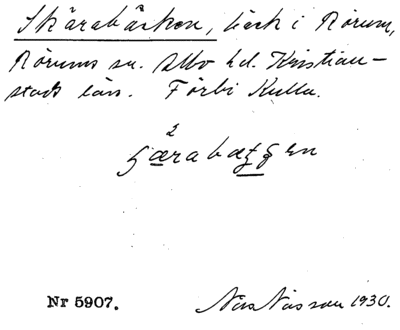 Skärabäcken, bäck i Rörum,
Rörums sn. Albo hd. Kristian-
stads län. Förbi Kulla.
2
Nr 5907.
Nils Nilsson 1930.